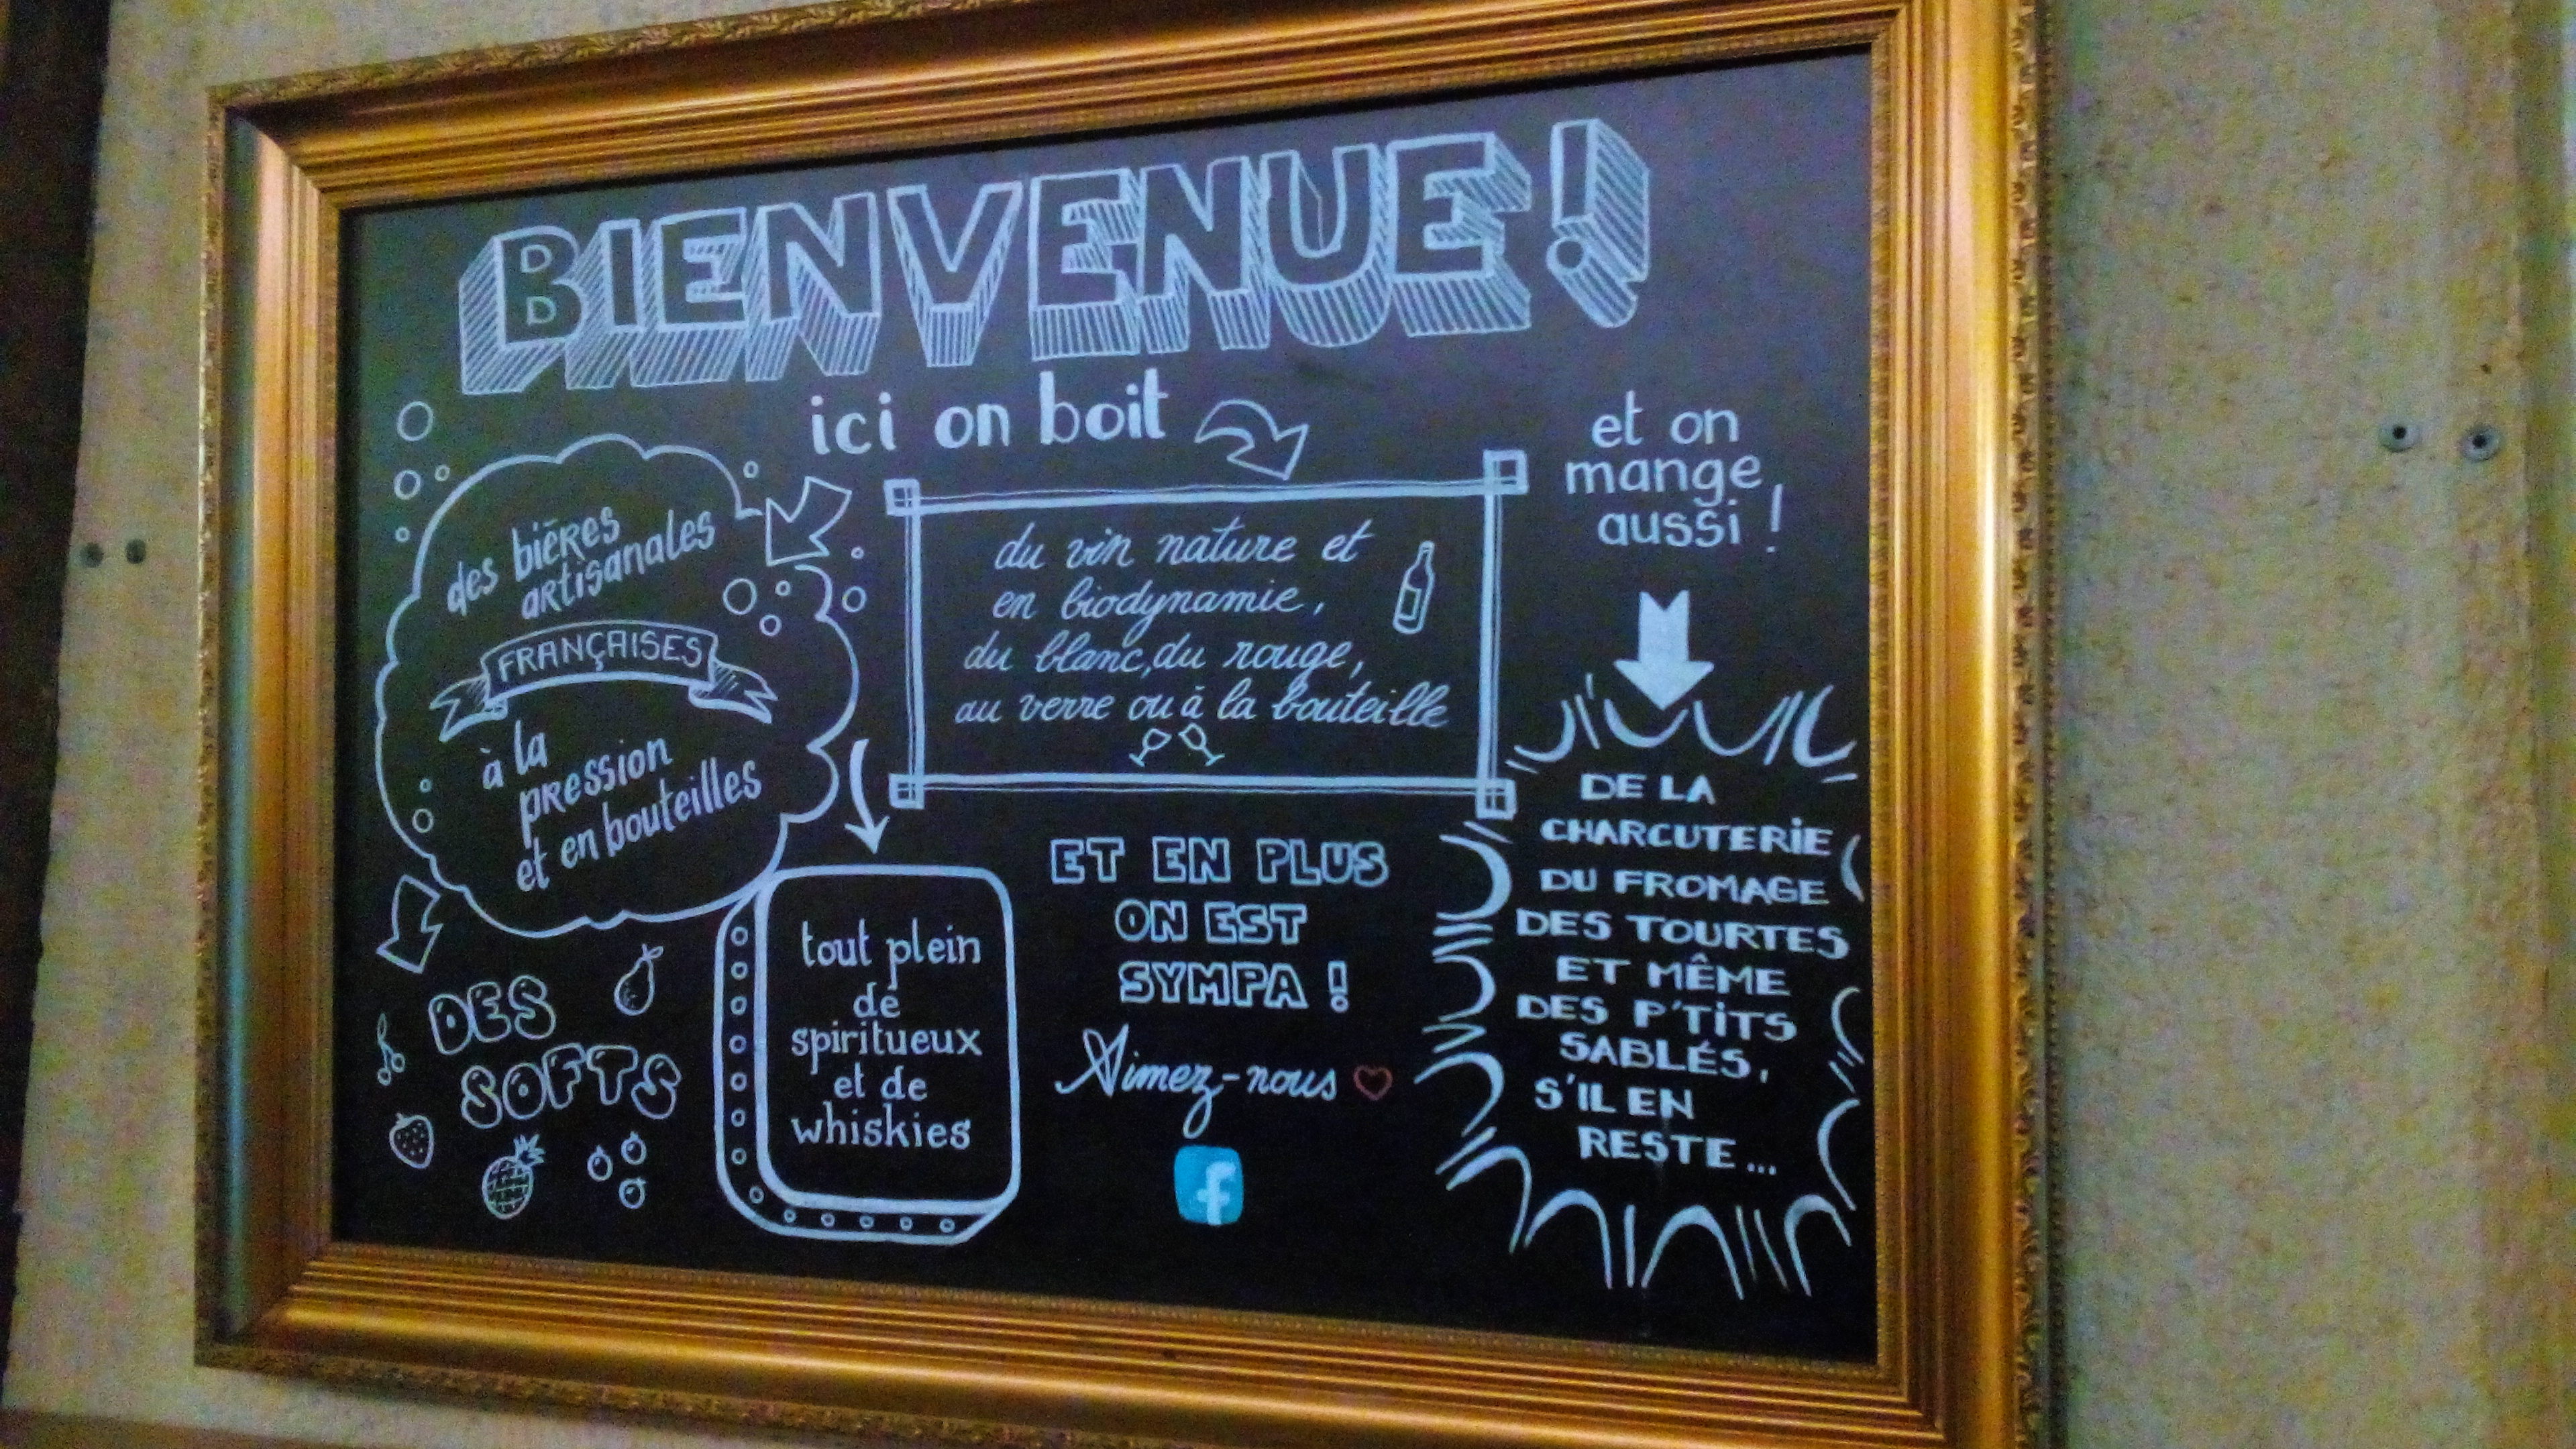 BIENVENUE !
ici on boit
des bières
artisanales
FRANÇAISES
à la
pression
et en bouteilles
du vin nature et
en biodynamie,
du blanc, du rouge,
au verre ou à la bouteille
et on
mange
aussi !
DE LA
CHARCUTERIE
DU FROMAGE
DES TOURTES
ET MÊME
DES P'TITS
SABLÉS,
S'IL EN
RESTE...
DES
SOFTS
tout plein
de
spiritueux
et de
whiskies
ET EN PLUS
ON EST
SYMPA !
Aimez-nous
f